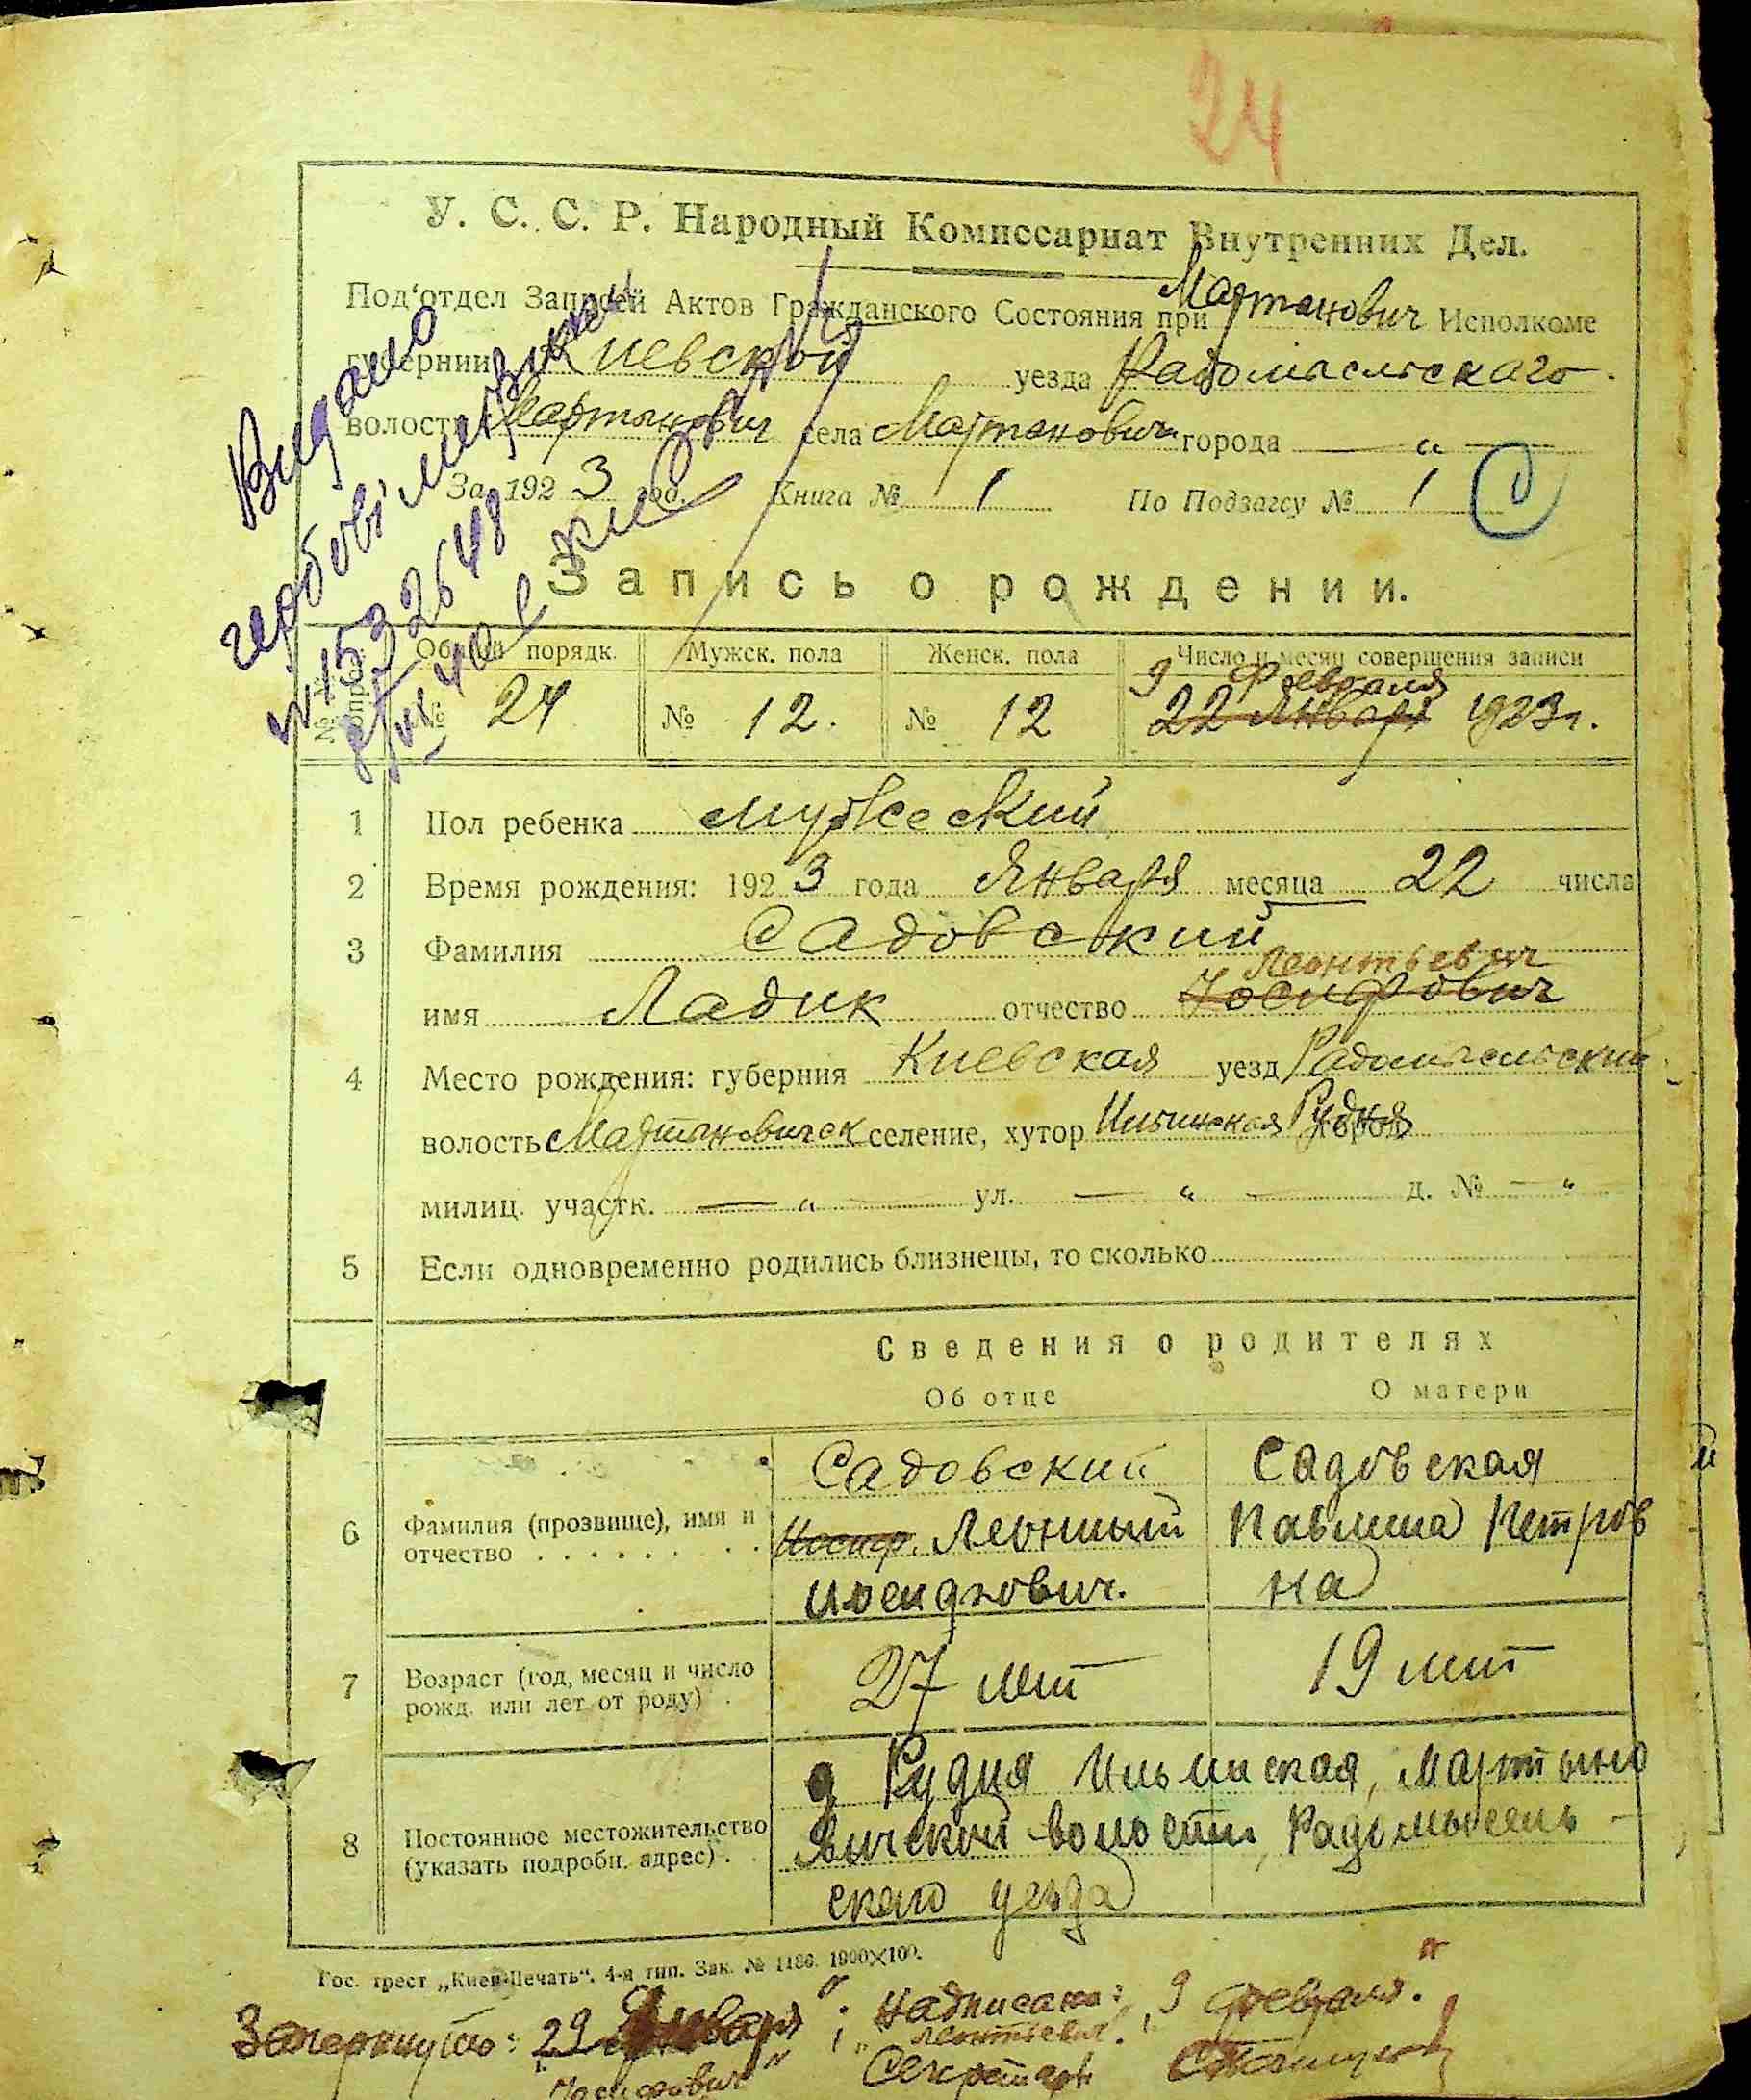 24
У. С. С. Р. Народный Комиссариат Внутренних Дел.
Под'отдел Записей Актов Гражданского Состояния при Мартынович Исполкоме
губернии Киевской уезда Радомысльскаго
волости Мартынович села Мартынович города — " —
За 1923 год. Книга № 1 По Подзагсу № 1
Видано
Запись о рождении.
Общий порядк. Мужск. пола Женск. пола Число и месяц совершения записи
9 Февраля
№ 24 № 12. № 12 22 Января 1923 г.
1 Пол ребенка мужеский
2 Время рождения: 1923 года Января месяца 22 числа
3 Фамилия Садовский
Леонтьевич
имя Ладик отчество Иосифович
4 Место рождения: губерния Киевская уезд Радомысльский
волость Мартыновичск селение, хутор Ильинская Рудня
милиц. участк. — " — ул. — " — д. № — "
5 Если одновременно родились близнецы, то сколько
Сведения о родителях
Об отце О матери
6 Фамилия (прозвище), имя и отчество
Садовский Садовская
Иосиф. Леонтий Павлина Петров
Иосифович. на
7 Возраст (год, месяц и число рожд. или лет от роду) 27 лет 19 лет
8 Постоянное местожительство (указать подробн. адрес)
д Рудня Ильинская, Мартыно
вичской волости, Радомысль-
ского уезда
Гос. трест „Киев-Печать". 4-я тип. Зак. № 1186. 1000×100.
Зачеркнуто: 29 Января"; надписано: „9 февраля."
„Иосифович" „Леонтьевич".
Секретарь